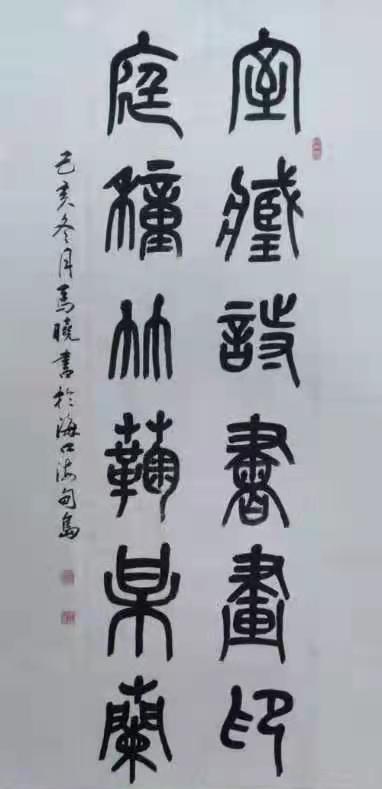 室藏詩書畫印
庭種竹蘜某蘭
己亥冬月馬曉書於海口海甸島